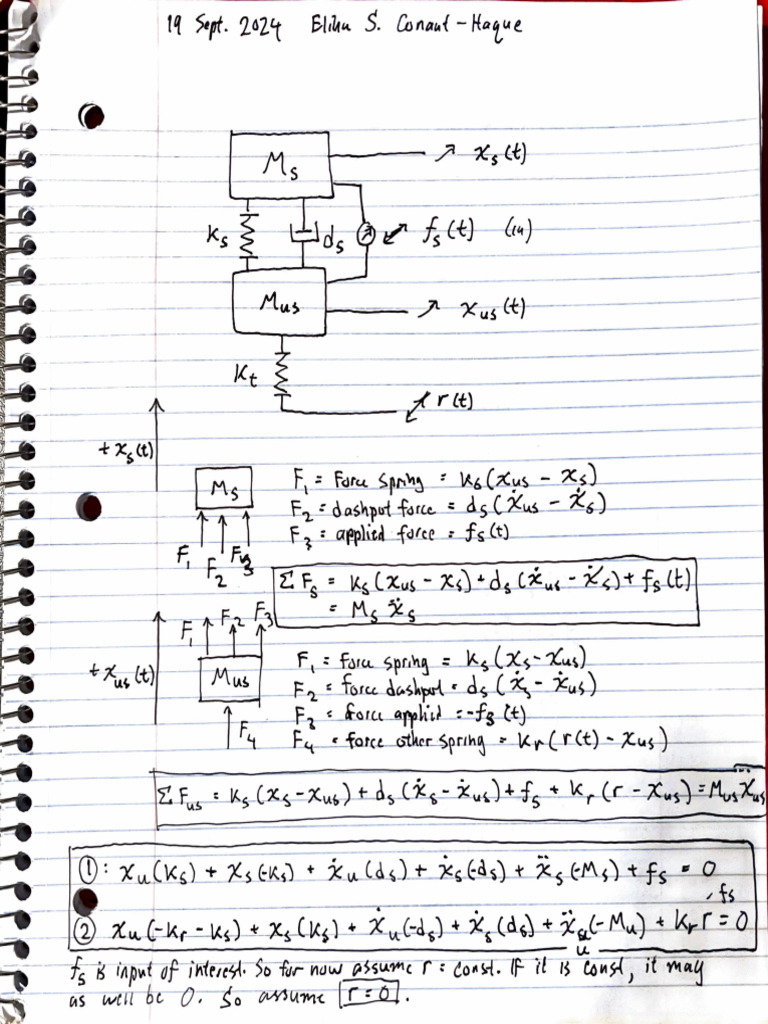 19 Sept. 2024 Elihu S. Conant-Haque
Ms
xs(t)
ks
ds
fs(t) (in)
Mus
xus(t)
Kt
r(t)
+xs(t)
Ms
F₁ F₂ F₃
F₁ = Force spring = ks(xus - xs)
F₂ = dashpot force = ds(ẋus - ẋs)
F₃ = applied force = fs(t)
Σ Fs = ks(xus - xs) + ds(ẋus - ẋs) + fs(t)
= Ms ẍs
+xus(t)
F₁ F₂ F₃
Mus
F₄
F₁ = force spring = ks(xs - xus)
F₂ = force dashpot = ds(ẋs - ẋus)
F₃ = force applied = -fs(t)
F₄ = force other spring = kr(r(t) - xus)
Σ Fus = ks(xs - xus) + ds(ẋs - ẋus) + fs + kr(r - xus) = Mus ẍus
①: xu(ks) + xs(-ks) + ẋu(ds) + ẋs(-ds) + ẍs(-Ms) + fs = 0
② xu(-kr - ks) + xs(ks) + ẋu(-ds) + ẋs(ds) + ẍu(-Mu) + kr r - fs = 0
fs is input of interest. So for now assume r = const. If it is const, it may
as well be 0. So assume r = 0.